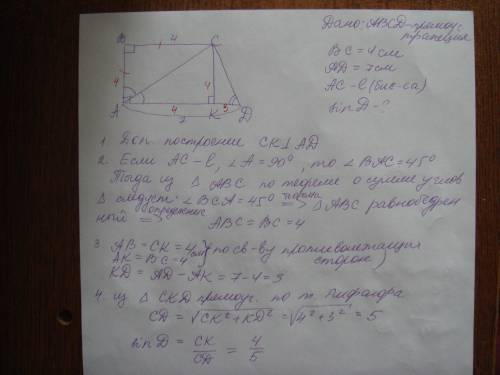 Дано: ABCD-прямоуг.
трапеция
BC = 4 см
AD = 7 см
AC - l (бис-са)
sin D - ?
B 4 C
4 4
A 4 K 3 D
7
1. Доп. построение CK⊥AD
2. Если AC - l, ∠A = 90°, то ∠BAC = 45°
Тогда из △ABC по теореме о сумме углов
△ следует ∠BCA = 45° ⇒ △ABC равнобедрен
ный ⇒ определение
ABC = BC = 4
3. AB = CK = 4
AK = BC = 4 см по св-ву противолежащих
KD = AD - AK = 7 - 4 = 3 сторон
4. из △CKD прямоуг. по т. Пифагора
CD = √CK² + KD² = √4² + 3² = 5
sin D = CK/CD = 4/5